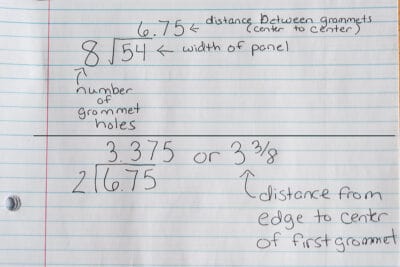 6.75 ← distance between grommets
(center to center)
8 √54 ← width of panel
number
of
grommet
holes
3.375 or 3 3/8
2 √6.75
distance from
edge to center
of first grommet